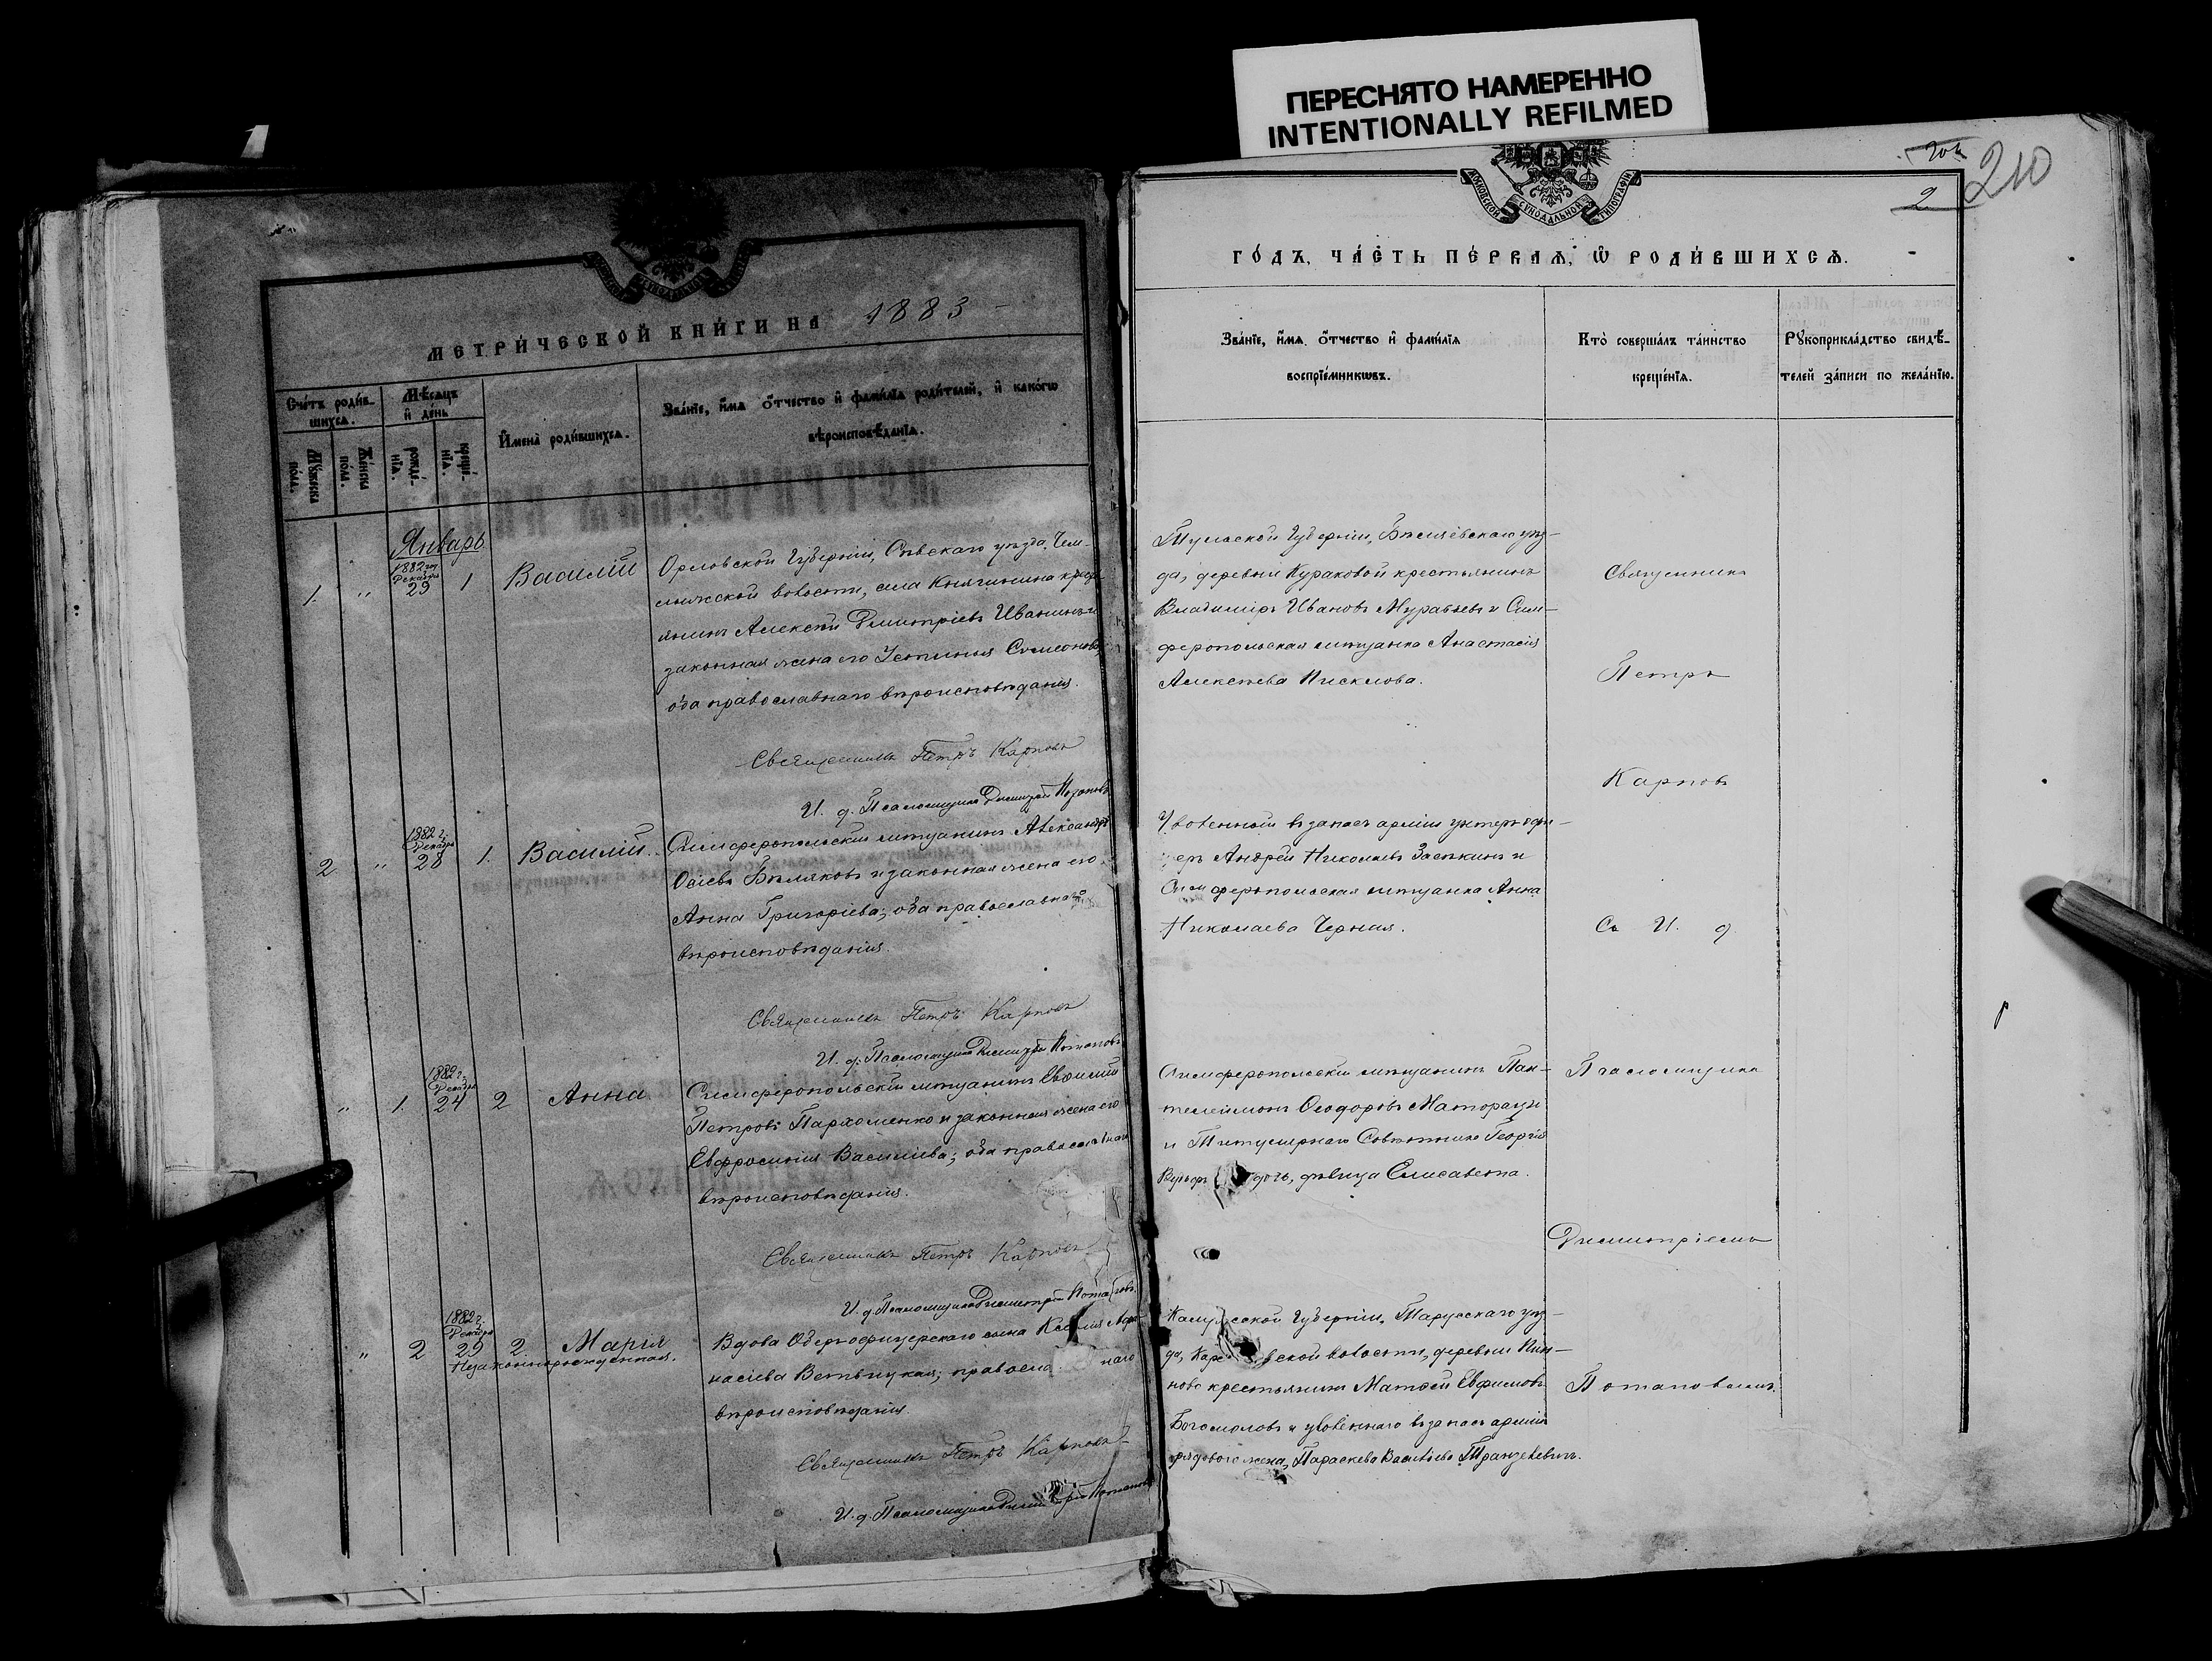 ПЕРЕСНЯТО НАМЕРЕННО
INTENTIONALLY REFILMED
МЕТРИ́ЧЕСКОЙ КНИ́ГИ НА 1883
Счетъ роди́в-
шихсѧ.
Мѣ́сѧцъ
и҆ де́нь
Мꙋ́жеска
по́ла.
Же́нска
по́ла.
рожде́-
нїѧ.
креще́-
нїѧ.
И҆мена̀ роди́вшихсѧ.
Зва́нїе, и҆́мѧ ѻ҆́тчество и҆ фамилїѧ роди́телей, и҆ како́гѡ
вѣроисповѣ́данїѧ.
Январь
1. " 1882 г. Декабря 29 1 Василій
Орловской Губерніи, Сѣвскаго уѣзда, Чем-
лыжской волости, села Княгинина кресть-
янинъ Алексѣй Димитріевъ Иванинъ и
законная жена его Устинья Симеонова
оба православнаго вѣроисповѣданія.
Священникъ Петръ Карповъ
И. д. Псаломщика Димитрій Потаповъ
2 " 1882 г. Декабря 28 1. Василій.
Симферопольскій мѣщанинъ Александръ
Осіевъ Бѣляковъ и законная жена его
Анна Григоріева; оба православнаго
вѣроисповѣданія.
Священникъ Петръ Карповъ
И. д. Псаломщика Димитрій Потаповъ
" 1. 1882 г. Декабря 24 2 Анна
Симферопольскій мѣщанинъ Евфимій
Петровъ Пархоменко и законная жена его
Евфросинія Василіева; оба православнаго
вѣроисповѣданія.
Священникъ Петръ Карповъ
И. д. Псаломщика Димитрій Потаповъ
" 2 1882 г. Декабря 29 2 Марія
Незаконнорожденная.
Вдова Оберъ-офицерскаго сына Ксенія Афа-
насіева Ветвицкая; православнаго
вѣроисповѣданія.
Священникъ Петръ Карповъ
И. д. Псаломщика Димитрій Потаповъ
МОСКОВСКОЙ СУНОДАЛЬНОЙ ТИПОГРАФІИ
2 210
ГО́ДЪ, ЧА́СТЬ ПЕ́РВАѦ, Ѽ РОДИ́ВШИХСѦ.
Зва́нїе, и҆́мѧ ѻ҆́тчество и҆ фами́лїѧ
воспрїе́мникѡвъ.
Кто̀ соверша́лъ та́инство
креще́нїѧ.
Рꙋкоприкла́дство свидѣ́-
телей за́писи по жела́нїю.
Тульской Губерніи, Бѣлевскаго уѣз-
да, деревни Кураковой крестьянинъ
Владиміръ Ивановъ Муравьевъ и Сим-
феропольская мѣщанка Анастасія
Алексѣева Писклова.
Священникъ
Петръ
Карповъ
Уволенный въ запасъ арміи унтеръ офи-
церъ Андрей Николаевъ Засѣкинъ и
Симферопольская мѣщанка Анна
Николаева Черная.
Съ И. д.
Симферопольскій мѣщанинъ Пан-
телеймонъ Ѳеодоровъ Маторацы
и Титулярнаго Совѣтника Георгія
дочь, дѣвица Елисавета.
Псаломщика
Димитріемъ
Калужской Губерніи, Тарусскаго уѣз-
да, волости, деревни
крестьянинъ Матѳей Евфимовъ
Богомоловъ и уволеннаго въ запасъ арміи
рядового жена, Параскева Василіева
Потаповымъ.